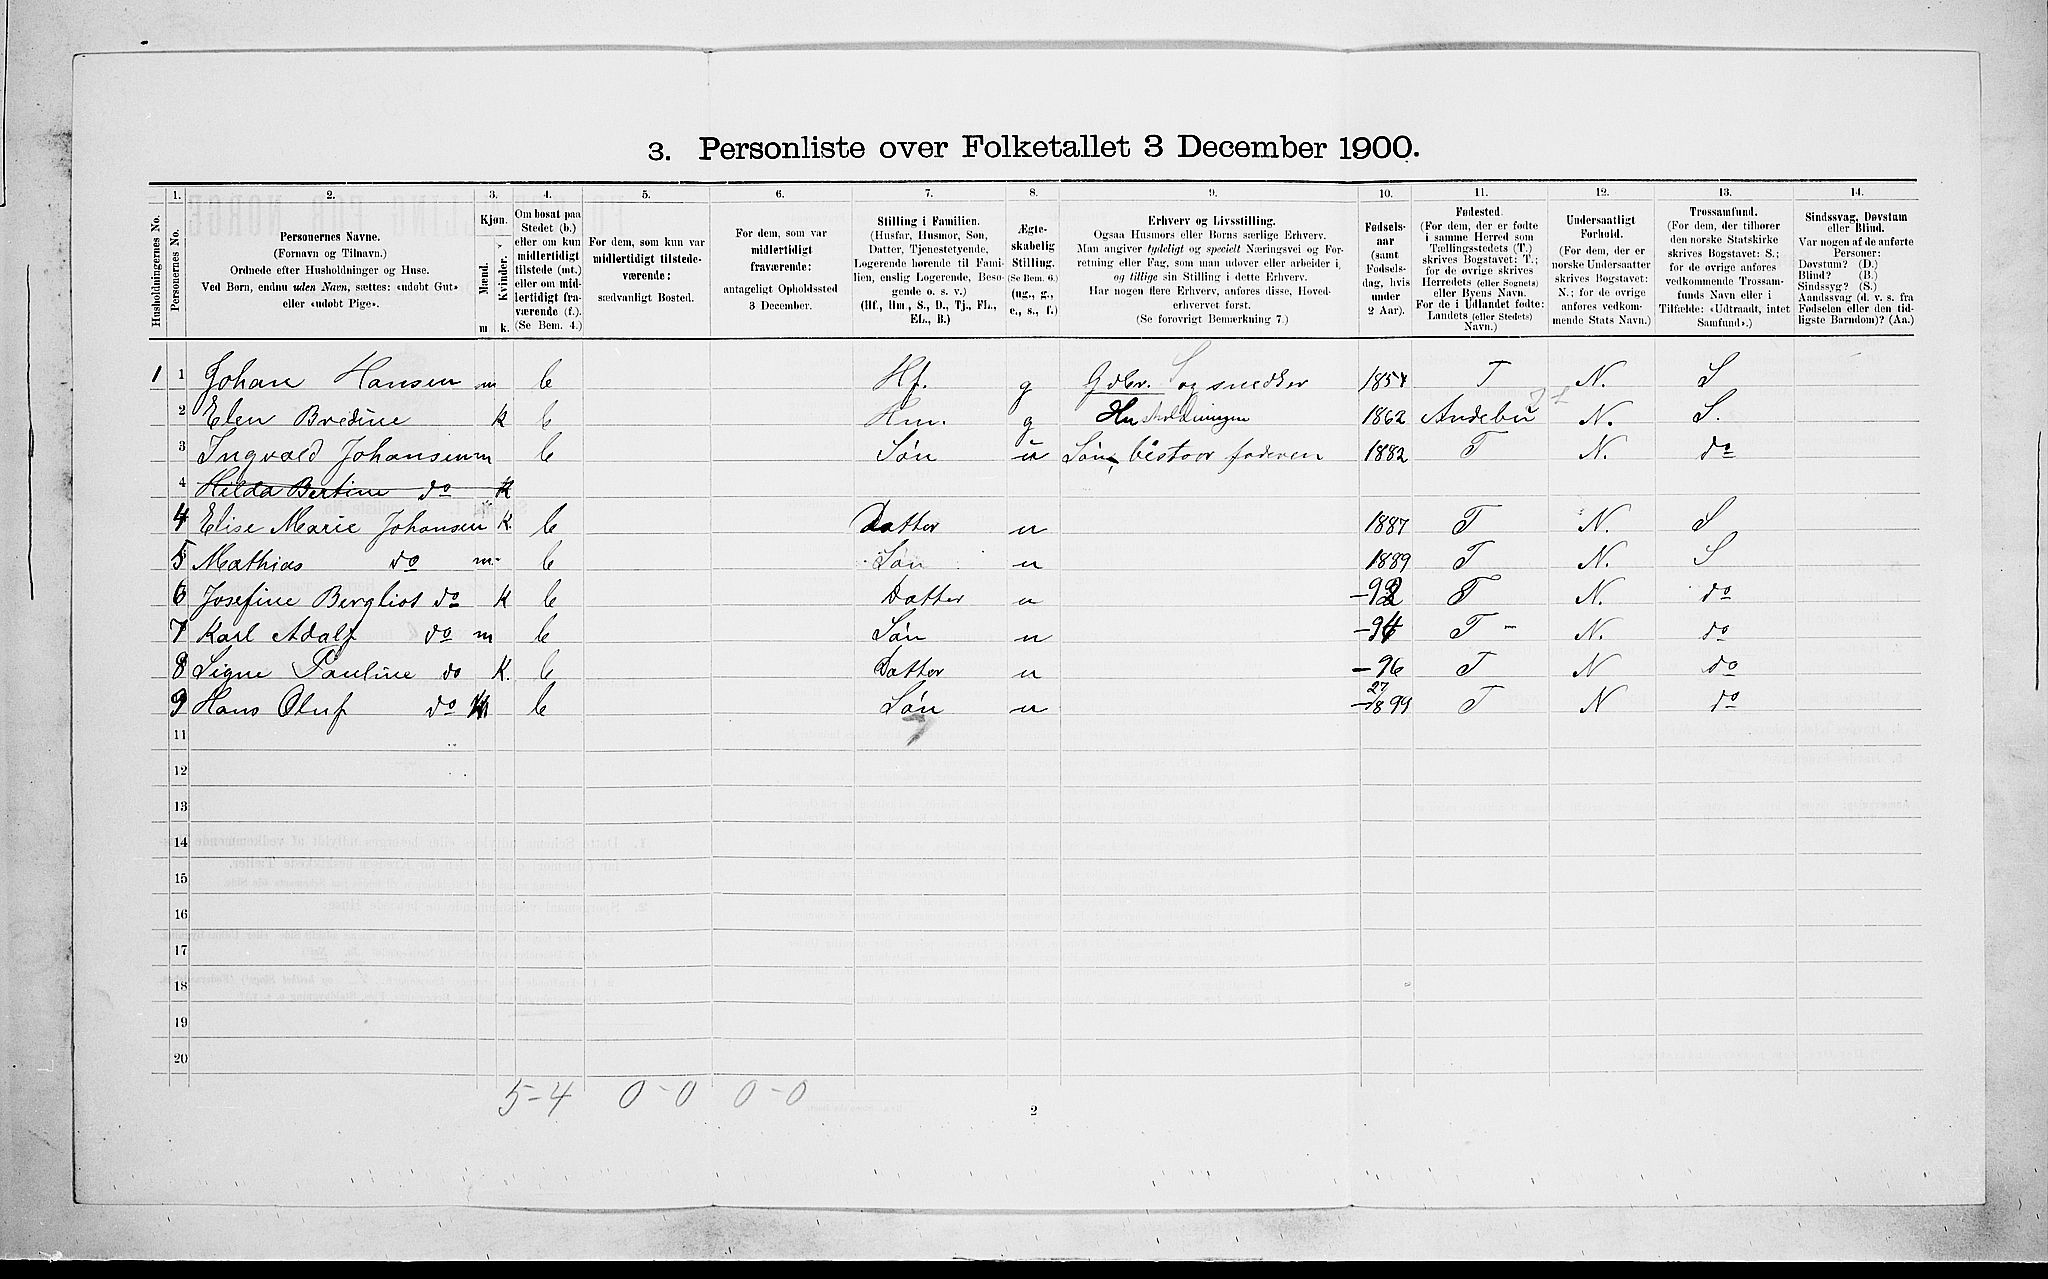 3. Personliste over Folketallet 3 December 1900.
1. 2. 3. 4. 5. 6. 7. 8. 9. 10. 11. 12. 13. 14.
Husholdningernes No.
Personernes No.
Personernes Navne.
(Fornavn og Tilnavn.)
Ordnede efter Husholdninger og Huse.
Ved Børn, endnu uden Navn, sættes: «udøbt Gut»
eller «udøbt Pige».
Kjøn.
Mænd.
Kvinder.
m k.
Om bosat paa
Stedet (b.)
eller om kun
midlertidigt
tilstede (mt.)
eller om mid-
lertidigt fra-
værende (f.).
(Se Bem. 4.)
For dem, som kun var
midlertidigt tilstede-
værende:
sædvanligt Bosted.
For dem, som var
midlertidigt
fraværende:
antageligt Opholdssted
3 December.
Stilling i Familien.
(Husfar, Husmor, Søn,
Datter, Tjenestetyende,
Logerende hørende til Fami-
lien, enslig Logerende, Besø-
gende o. s. v.)
(Hf., Hm., S., D., Tj., FL.,
EL., B.)
Ægte-
skabelig
Stilling.
(Se Bem. 6.)
(ug., g.,
e., s., f.)
Erhverv og Livsstilling.
Ogsaa Husmors eller Børns særlige Erhverv.
Man angiver tydeligt og specielt Næringsvei og For-
retning eller Fag, som man udøver eller arbeider i,
og tillige sin Stilling i dette Erhverv.
Har nogen flere Erhverv, anføres disse, Hoved-
erhvervet først.
(Se forøvrigt Bemærkning 7.)
Fødsels-
aar
(samt
Fødsels-
dag, hvis
under
2 Aar).
Fødested.
(For dem, der er fødte
i samme Herred som
Tællingsstedets (T.)
skrives Bogstavet: T.;
for de øvrige skrives
Herredets (eller Sognets)
eller Byens Navn.
For de i Udlandet fødte:
Landets (eller Stedets)
Navn.)
Undersaatligt
Forhold.
(For dem, der er
norske Undersaatter
skrives Bogstavet:
N.; for de øvrige
anføres vedkom-
mende Stats Navn.)
Trossamfund.
(For dem, der tilhører
den norske Statskirke
skrives Bogstavet: S.;
for de øvrige anføres
vedkommende Trossam-
funds Navn eller i
Tilfælde: «Udtraadt, intet
Samfund».)
Sindssvag, Døvstum
eller Blind.
Var nogen af de anførte
Personer:
Døvstum? (D.)
Blind? (B.)
Sindssyg? (S.)
Aandssvag (d. v. s. fra
Fødselen eller den tid-
ligste Barndom)? (Aa.)
1 1 Johan Hansen m b Hf. g Gdbr. S og snedker 1854 T N. S
2 Elen Bredine k b Hm. g Husholdningen 1862 Andebu N. S.
3 Ingvald Johansen m b Søn u Søn, bistaar faderen 1882 T N. do
4 Hilda Bertine do K
4 Elise Marie Johansen K. b Datter u 1887 T N. S
5 Mathias do m. b Søn u 1889 T N. S
6 Josefine Bergliot do K b Datter u -92 T N. do
7 Karl Adalf do m b Søn u -94 T - N. do
8 Signe Pauline do K. b Datter u -96 T N do
9 Hans Oluf do m b Søn u 27 - 1899 T N do
11
12
13
14
15
16
17
18
19
20
5-4 0-0 0-0
2